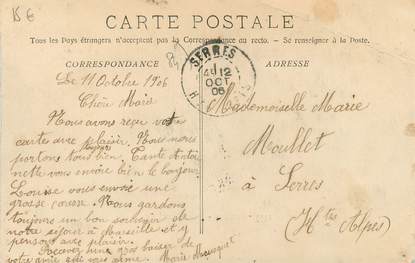 CARTE POSTALE
Tous les Pays étrangers n'acceptent pas la Correspondance au recto. — Se renseigner à la Poste.
CORRESPONDANCE
ADRESSE
SERRES
12
OCT
06
Le 11 Octobre 1906
Chère Marie
Nous avons reçu votre
carte avec plaisir. Nous nous
portons tous bien. Tante Antoi
nette vous envoie bien le bonjour
Louise vous envoie une
grosse caresse. Nous gardons
toujours un bon souvenir de
notre séjour à Marseille et y
pensons avec plaisir.
Recevez une gros baiser de
votre amie qui vous aime. Marie
Mademoiselle Marie
Moullet
à
Serres
(Htes Alpes)